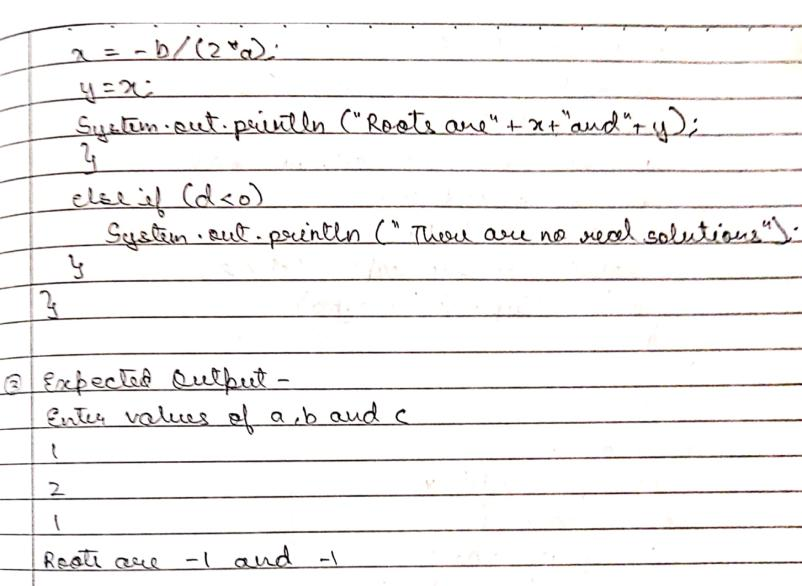 x = -b/(2*a);
y=x;
System.out.println ("Roots are" + x+"and"+ y);
}
else if (d<0)
System.out.println (" There are no real solutions");
}
}
② Expected Output -
Enter values of a,b and c
1
2
1
Roots are -1 and -1